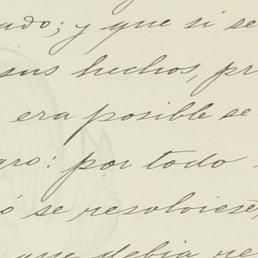 udo; y que si se
sus hechos, pr
era posible se
aro: por todo
ó se resolviese,
que debia re